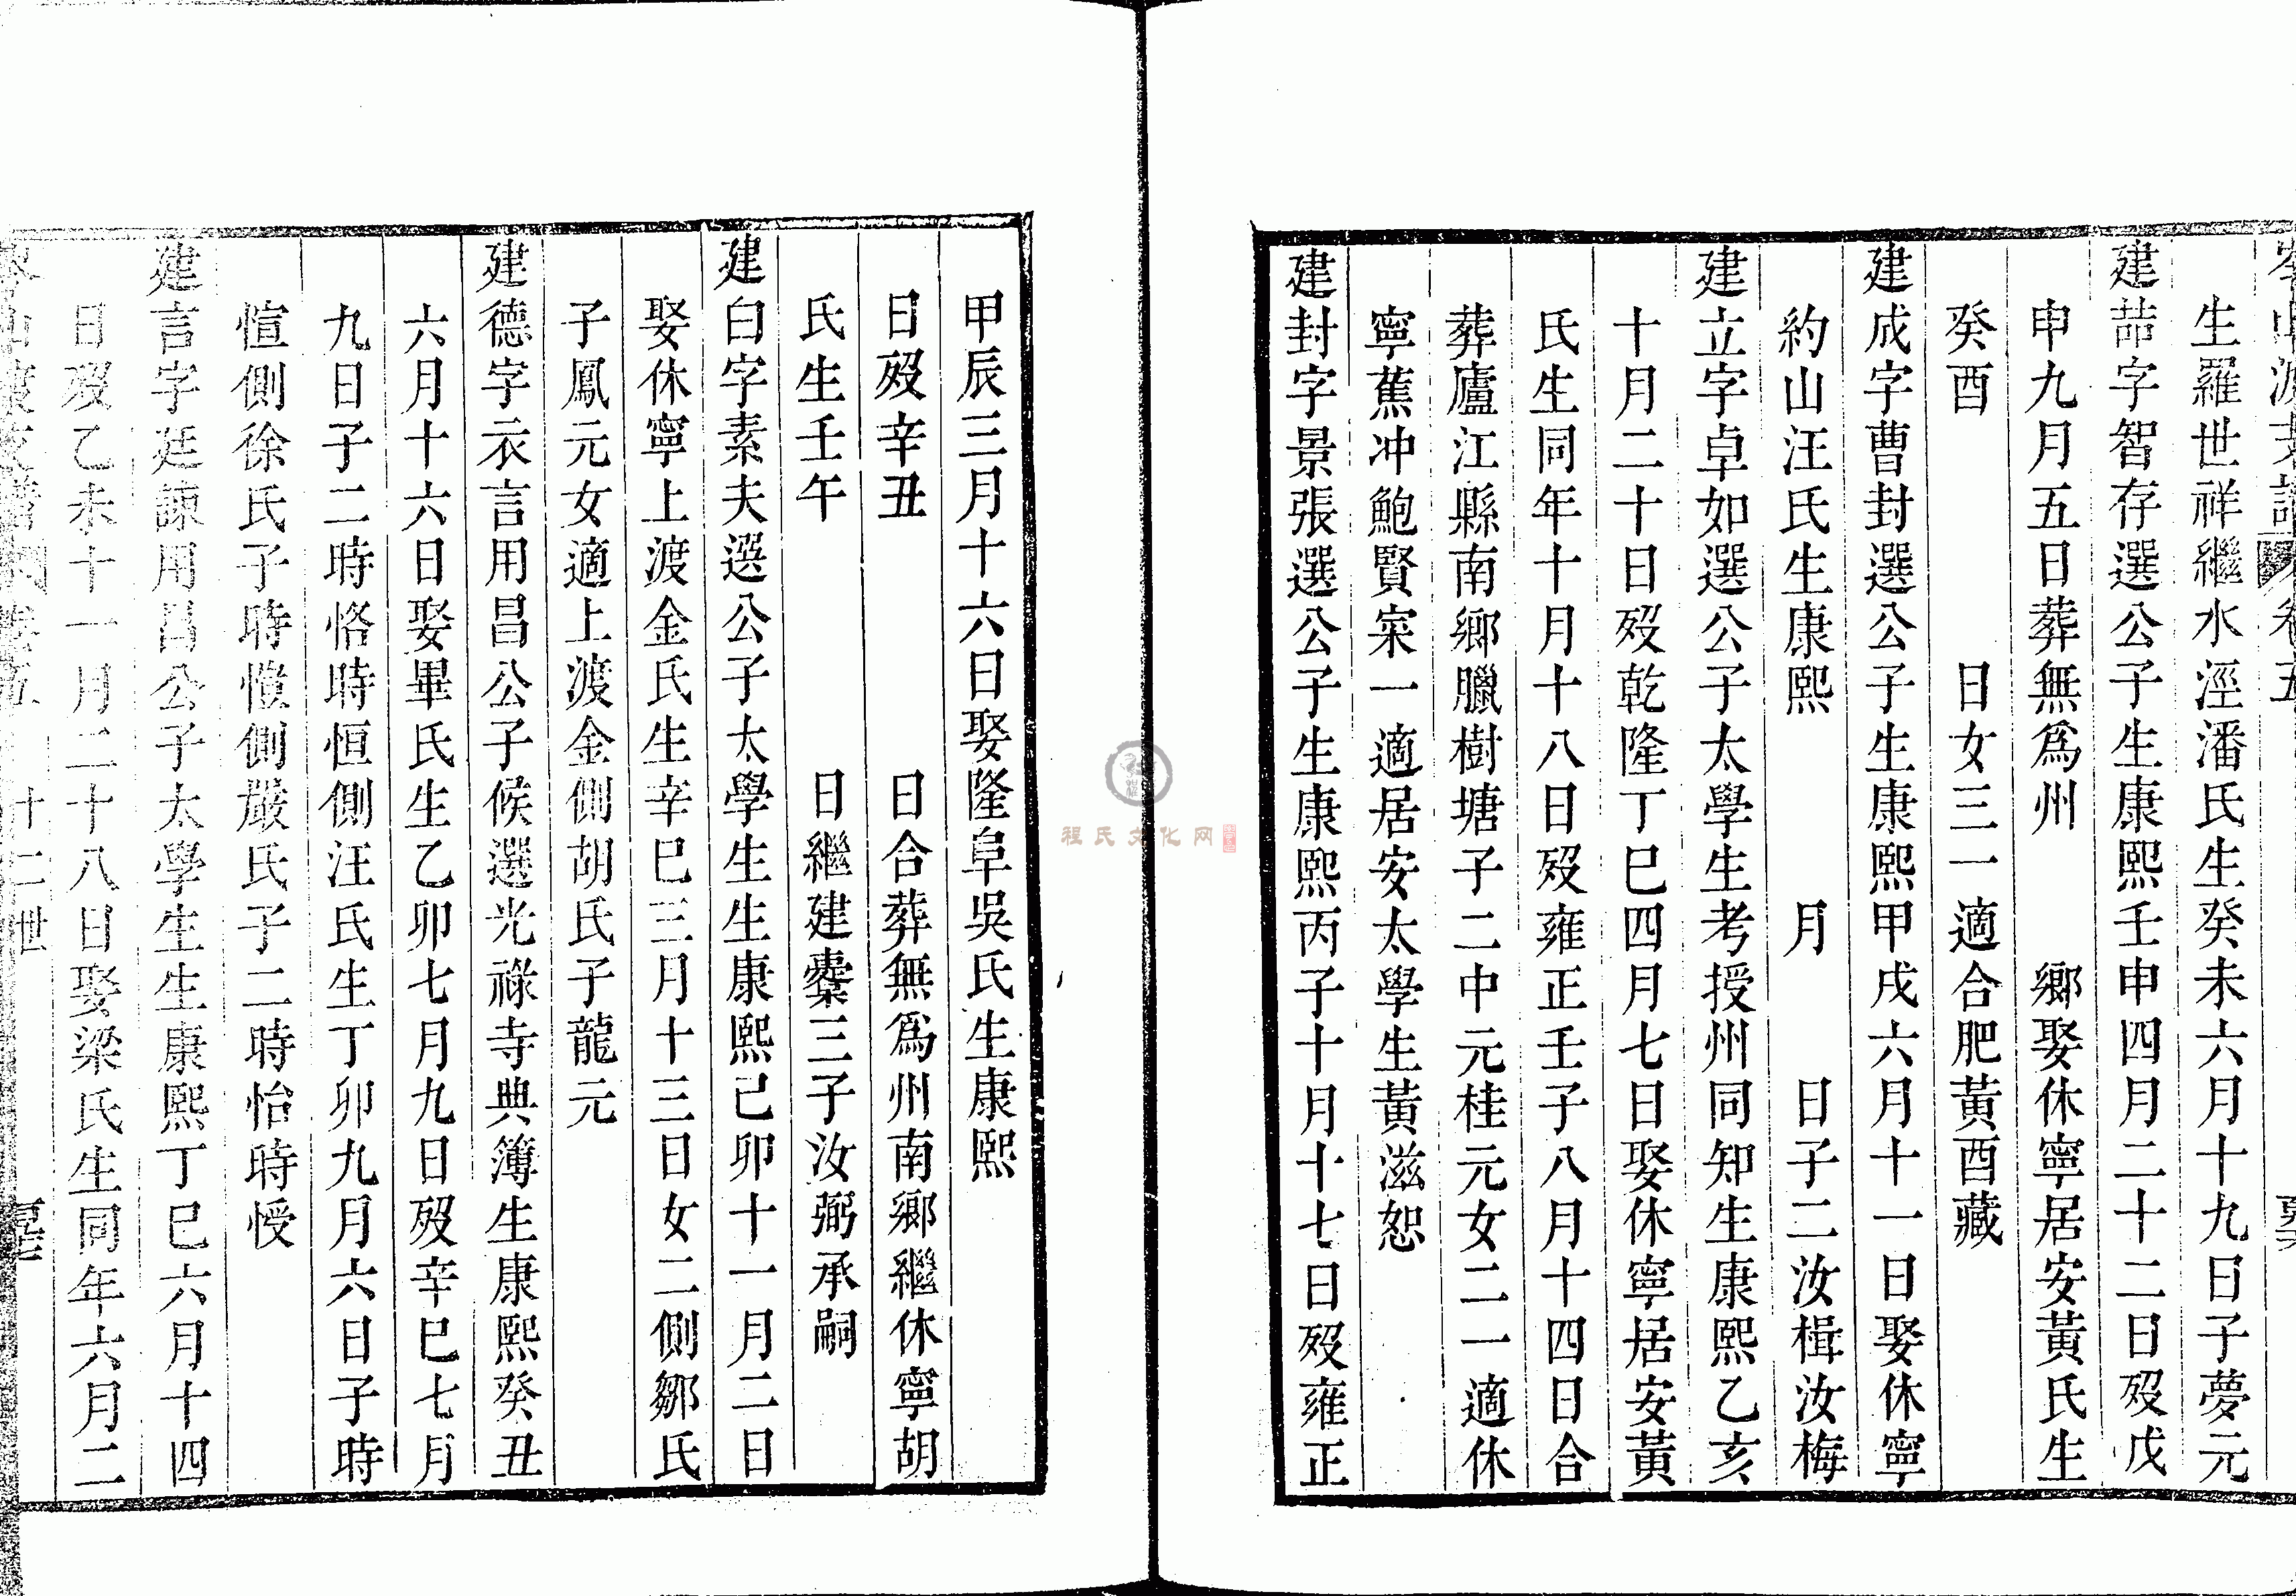 生羅世祥繼水涇潘氏生癸未六月十九日子夢元
建喆字智存選公子生康熙壬申四月二十二日歿戊
申九月五日葬無爲州 鄉娶休寧居安黃氏生
癸酉 日女三一適合肥黃酉藏
建成字曹封選公子生康熙甲戌六月十一日娶休寧
約山汪氏生康熙 月 日子二汝楫汝梅
建立字卓如選公子太學生考授州同知生康熙乙亥
十月二十日歿乾隆丁巳四月七日娶休寧居安黃
氏生同年十月十八日歿雍正壬子八月十四日合
葬廬江縣南鄉臘樹塘子二中元桂元女二一適休
寧蕉冲鮑賢宷一適居安太學生黃滋恕
建封字景張選公子生康熙丙子十月十七日歿雍正
甲辰三月十六日娶隆阜吳氏生康熙
日歿辛丑 日合葬無爲州南鄉繼休寧胡
氏生壬午 日繼建櫜三子汝弼承嗣
建白字素夫選公子太學生生康熙己卯十一月二日
娶休寧上渡金氏生辛巳三月十三日女二側鄒氏
子鳳元女適上渡金側胡氏子龍元
建德字衣言用昌公子候選光祿寺典簿生康熙癸丑
六月十六日娶畢氏生乙卯七月九日歿辛巳七月
九日子二時恪時恒側汪氏生丁卯九月六日子時
愃側徐氏子時愷側嚴氏子二時怡時㥅
建言字廷諫用昌公子太學生生康熙丁巳六月十四
日歿乙未十一月二十八日娶梁氏生同年六月二
十二世
程氏文化网